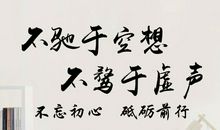 不驰于空想
不骛于虚声
不忘初心 砥砺前行